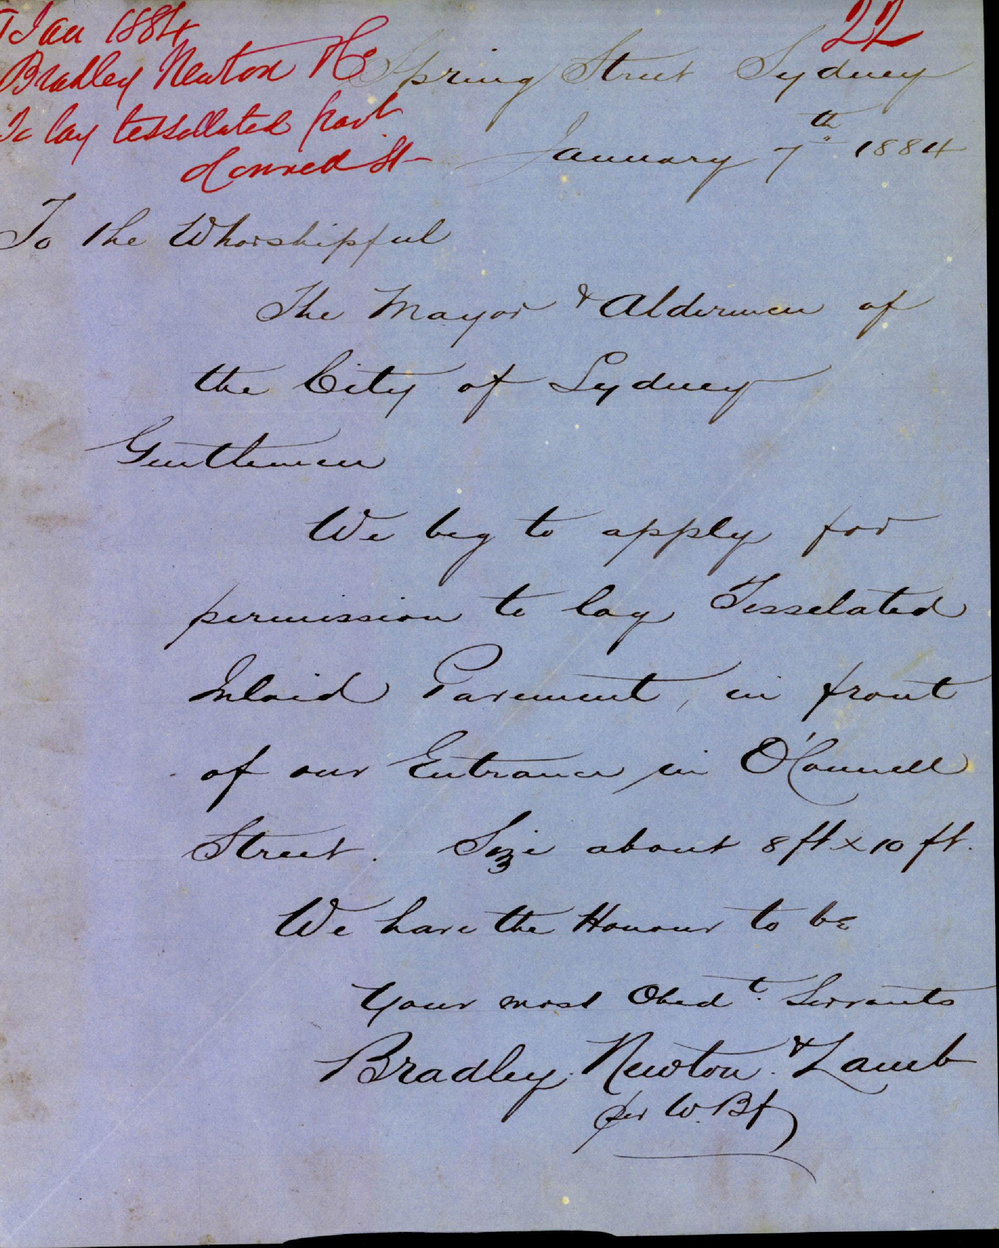 7 Jan 1884
22
Bradley Newton &c
Spring Street Sydney
To lay tessellated pavt
Connell St
January 7th 1884
To the Whorshipful
The Mayor & Aldermen of
the City of Sydney
Gentlemen
We beg to apply for
permission to lay Tesselated
Inlaid Pavement, in front
of our Entrance in O'Connell
Street. Size about 8 ft x 10 ft.
We have the Honour to be
Your most Obedt. Servants
Bradley. Newton. & Lamb
per W.